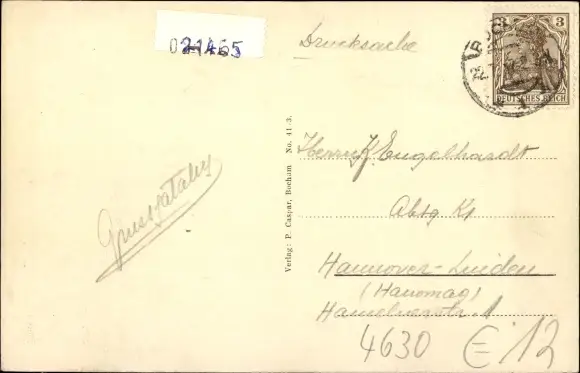 021465
Drucksache
3
DEUTSCHES REICH
Herrn K. Engelhardt
Abtg K1
Hannover-Linden
(Hanomag)
Hamelnerstr. 1
4630 E 12
Verlag: P. Caspar, Bochum No. 41-3.